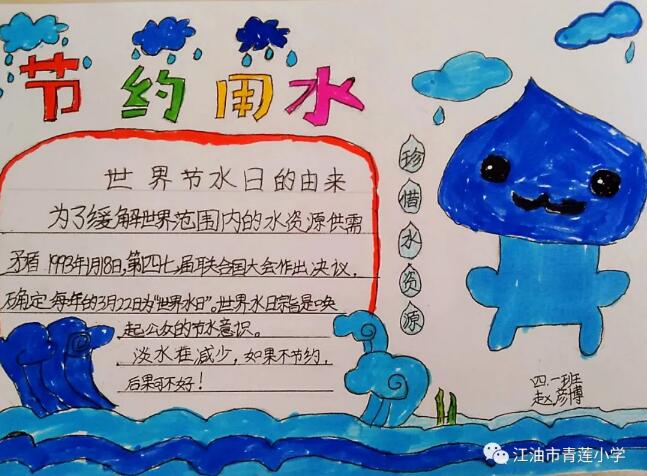 节约用水
世界节水日的由来
为了缓解世界范围内的水资源供需
矛盾1993年1月18日,第四七届联合国大会作出决议,
确定每年的3月22日为“世界水日”。世界水日宗旨是唤
起公众的节水意识。
淡水在减少,如果不节约,
后果可不好!
珍惜水资源
四.一班
赵彦博
江油市青莲小学